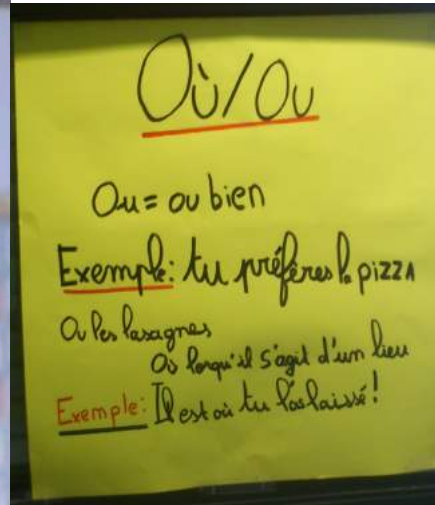 Où/Ou
Ou = ou bien
Exemple: tu préfères la pizza
Ou les lasagnes
Où lorqu'il s'agit d'un lieu
Exemple: Il est où tu l'as laissé!